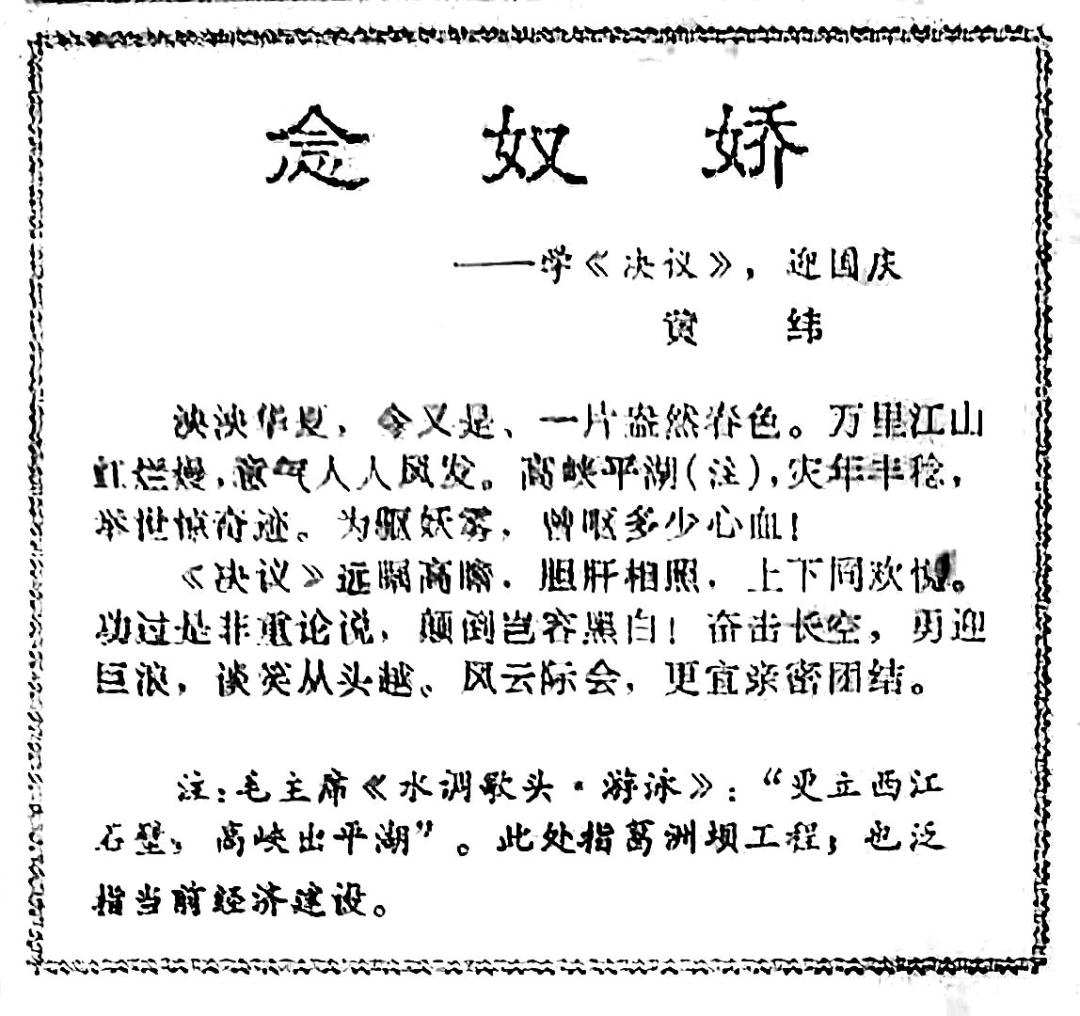 念奴娇
——学《决议》，迎国庆
黄 纬
泱泱华夏，今又是、一片盎然春色。万里江山
红烂熳，意气人人风发。高峡平湖（注），灾年丰稔，
举世惊奇迹。为驱妖雾，曾呕多少心血！
《决议》远瞩高瞻，胆肝相照，上下同欢悦。
功过是非重论说，颠倒岂容黑白！奋击长空，勇迎
巨浪，谈笑从头越。风云际会，更宜亲密团结。
注：毛主席《水调歌头·游泳》：“更立西江
石壁，高峡出平湖”。此处指葛洲坝工程；也泛
指当前经济建设。